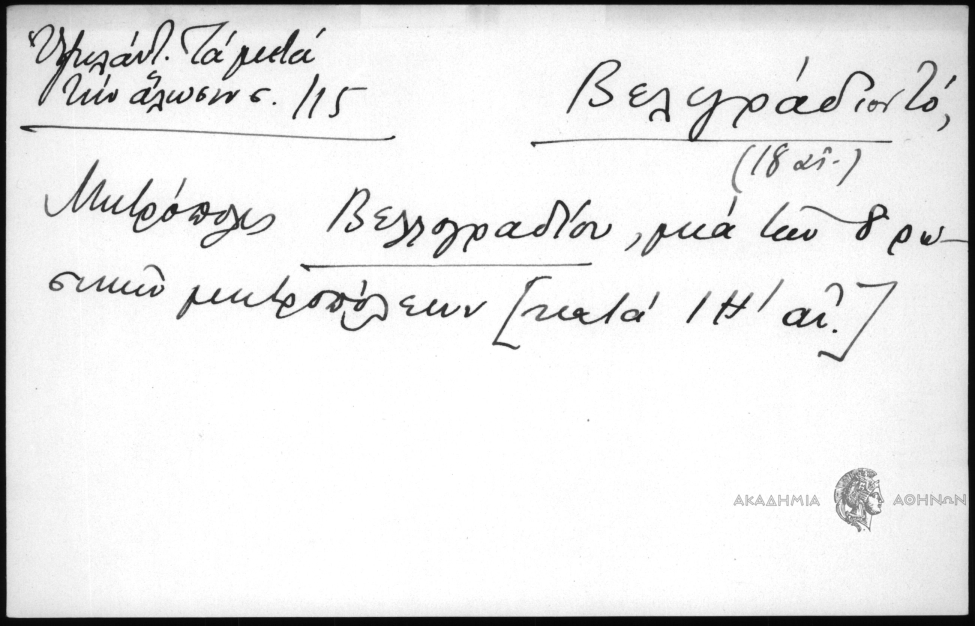 Ὑψηλάντ. Τά μετά
τήν ἅλωσιν σ. 115
Βελεγράδιον τό,
(18 αἰ.)
Μητρόπολις Βελλογραδίου, μιά τῶν 8 ρω-
σικῶν μητροπόλεων [κατά ΙΗ' αἰ.]
ΑΚΑΔΗΜΙΑ ΑΘΗΝΩΝ